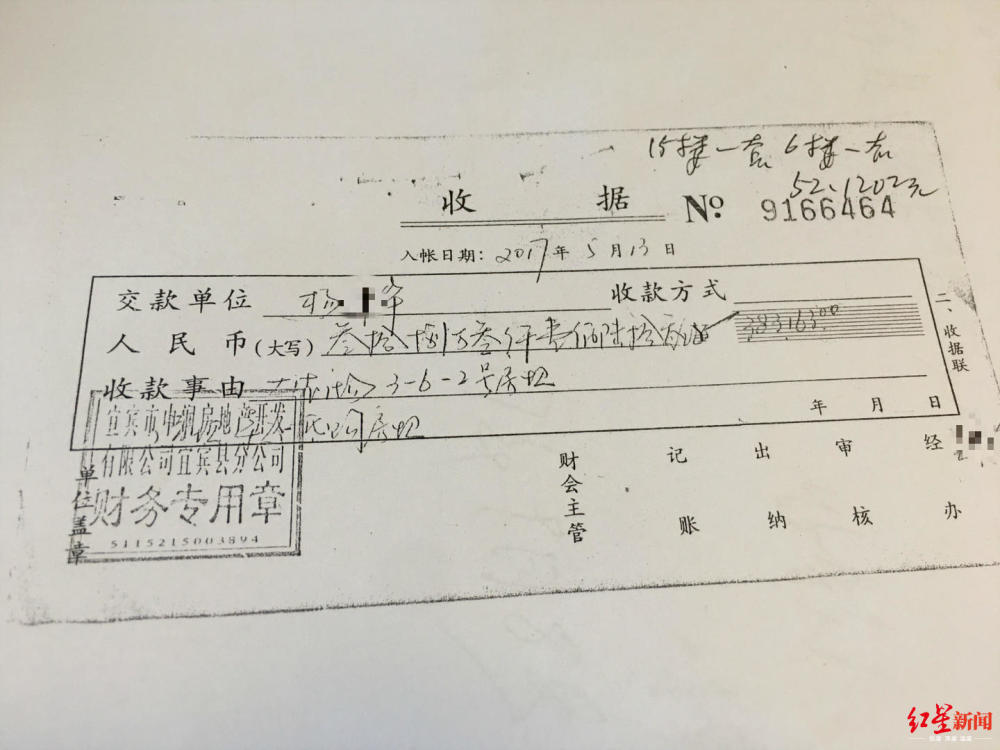 15楼一套 6楼一套
52.1202元
收 据 No 9166464
入帐日期: 2017年 5月 13日
交款单位 杨 收款方式
人民币(大写) 叁拾捌万叁仟壹佰陆拾 383163.00
收款事由 3-6-2号房
年 月 日
二、收据联
单位盖章
宜宾市中润房地产开发
有限公司宜宾县分公司
财务专用章
5115215003894
财会主管 记账 出纳 审核 经办
红星新闻